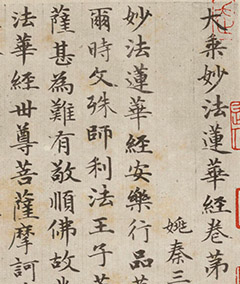 大乘妙法蓮華經卷第
姚秦三
妙法蓮華經安樂行品
爾時文殊師利法王子
薩甚為難有敬順佛故
法華經世尊菩薩摩訶